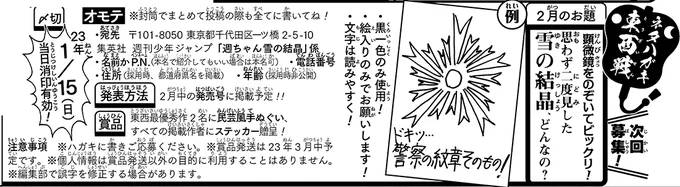 ネタハガキ東西戦
次回募集!
2月のお題
顕微鏡をのぞいてビックリ!
思わず二度見した
雪の結晶、どんなの?
例
ドキッ…
警察の紋章そのもの!
・黒一色のみ使用!
・絵入りのみでお願いします!
・文字は読みやすく!
オモテ ※封筒でまとめて投稿の際も全てに書いてね!
・宛先 〒101-8050 東京都千代田区一ツ橋2-5-10
集英社 週刊少年ジャンプ「週ちゃん雪の結晶」係
・名前かP.N.(本名で紹介してもいい場合は本名可) ・電話番号
・住所(採用時、都道府県名を掲載) ・年齢(採用時非公開)
発表方法 2月中の発売号に掲載予定!!
賞品 東西最優秀作2名に民芸風手ぬぐい、
すべての掲載作者にステッカー贈呈!
〆切
23年
1/15(日)
当日消印有効!
注意事項 ※ハガキに書きご応募ください。※賞品発送は23年3月中予
定です。※個人情報は賞品発送以外の目的に利用することはありません。
※編集部で誤字を修正する場合があります。